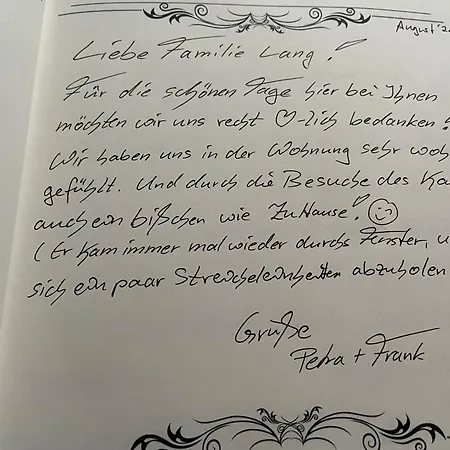 August '2
Liebe Familie Lang!
Für die schönen Tage hier bei Ihnen
möchten wir uns recht ♡-lich bedanken!
Wir haben uns in der Wohnung sehr woh
gefühlt. Und durch die Besuche des Ka
auch ein bißchen wie ZuHause! ☺
(Er kam immer mal wieder durchs Fenster, u
sich ein paar Streicheleinheiten abzuholen
Grüße
Petra + Frank